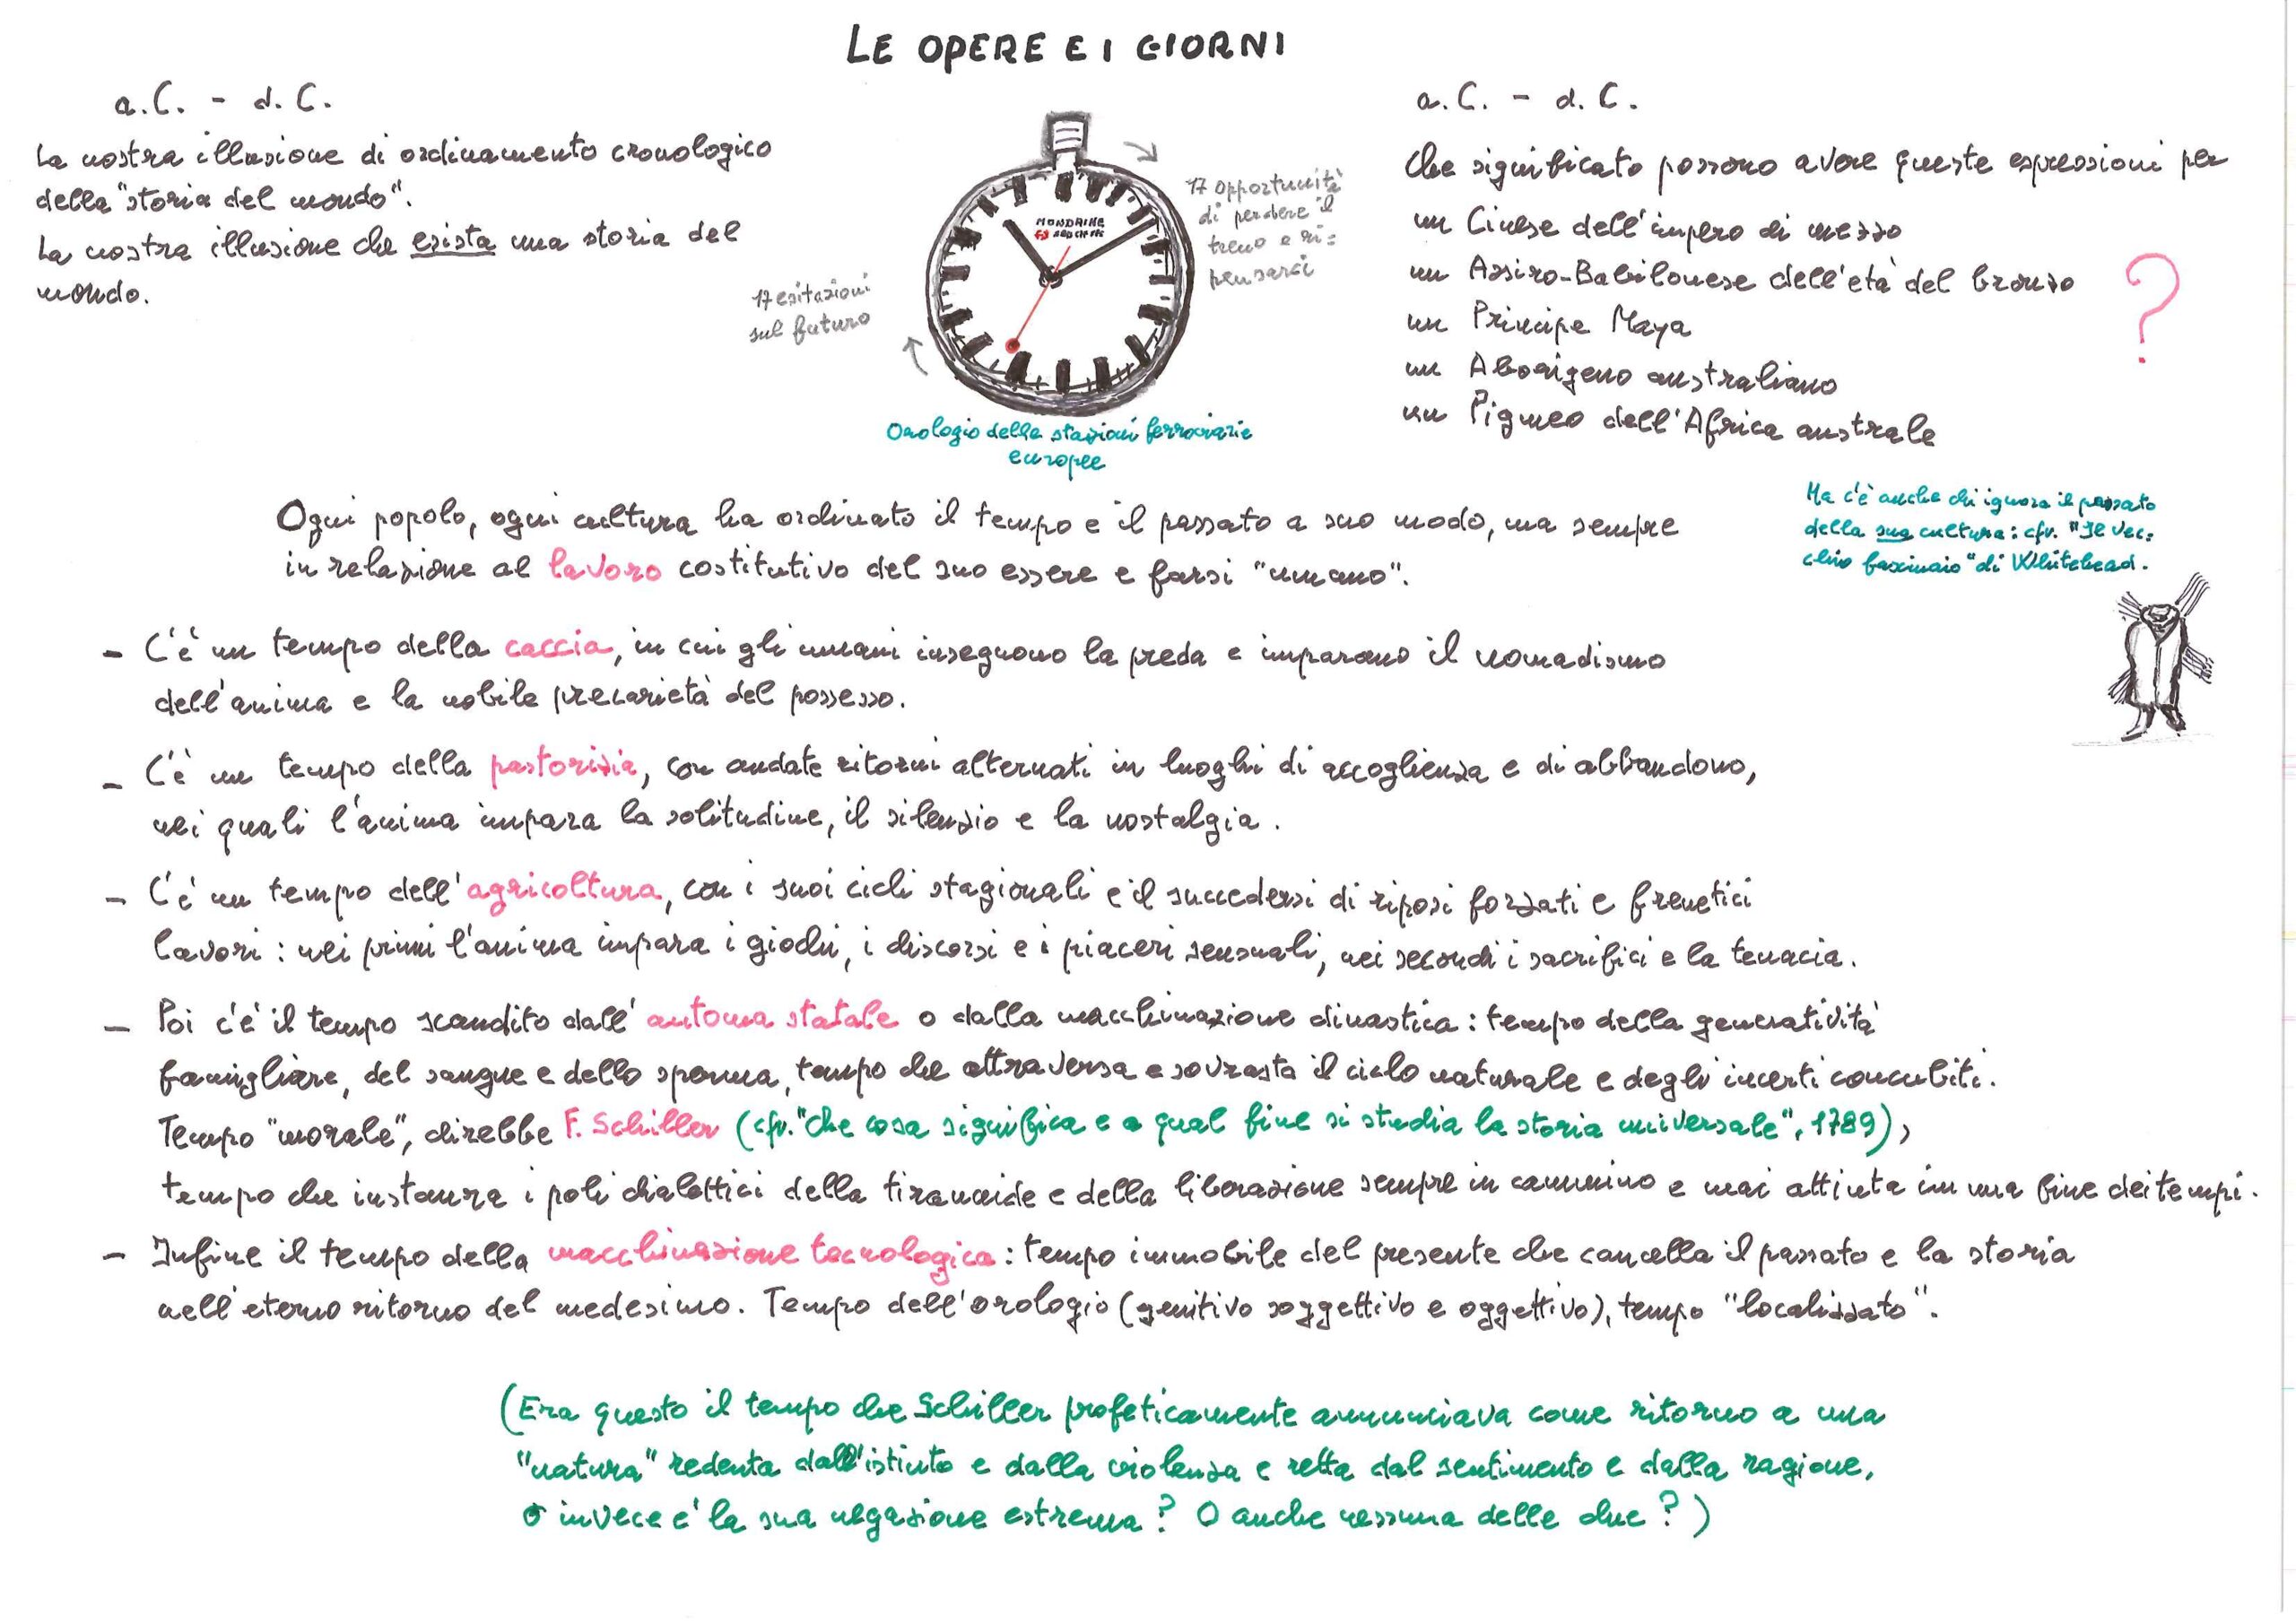 LE OPERE E I GIORNI
a.C. - d.C.
La nostra illusione di ordinamento cronologico
della "storia del mondo".
La nostra illusione che esista una storia del
mondo.
17 esitazioni
sul futuro
MONDAINE
SBB CFF FFS
17 opportunità
di perdere il
treno e ri=
pensarci
Orologio delle stazioni ferroviarie
europee
a.C. - d.C.
Che significato possono avere queste espressioni per
un Cinese dell'impero di mezzo
un Assiro-Babilonese dell'età del bronzo
un Principe Maya
un Aborigeno australiano
un Pigmeo dell'Africa australe
?
Ma c'è anche chi ignora il passato
della sua cultura: cfr. "Il vec=
chio fascinaio" di Whitehead.
Ogni popolo, ogni cultura ha ordinato il tempo e il passato a suo modo, ma sempre
in relazione al lavoro costitutivo del suo essere e farsi "umano".
- C'è un tempo della caccia, in cui gli umani inseguono la preda e imparano il nomadismo
dell'anima e la nobile precarietà del possesso.
- C'è un tempo della pastorizia, con andate ritorni alternati in luoghi di accoglienza e di abbandono,
nei quali l'anima impara la solitudine, il silenzio e la nostalgia.
- C'è un tempo dell'agricoltura, con i suoi cicli stagionali e il succedersi di riposi forzati e frenetici
lavori: nei primi l'anima impara i giochi, i discorsi e i piaceri sensuali, nei secondi i sacrifici e la tenacia.
- Poi c'è il tempo scandito dall'automa statale o dalla macchinazione dinastica: tempo della generatività
famigliare, del sangue e dello sperma, tempo che attraversa e sovrasta il ciclo naturale e degli incerti concubiti.
Tempo "morale", direbbe F. Schiller (cfr. "Che cosa significa e a qual fine si studia la storia universale", 1789),
tempo che instaura i poli dialettici della tirannide e della liberazione sempre in cammino e mai attinta in una fine dei tempi.
- Infine il tempo della macchinazione tecnologica: tempo immobile del presente che cancella il passato e la storia
nell'eterno ritorno del medesimo. Tempo dell'orologio (genitivo soggettivo e oggettivo), tempo "localizzato".
(Era questo il tempo che Schiller profeticamente annunciava come ritorno a una
"natura" redenta dall'istinto e dalla violenza e retta dal sentimento e dalla ragione,
o invece è la sua negazione estrema? O anche nessuna delle due?)